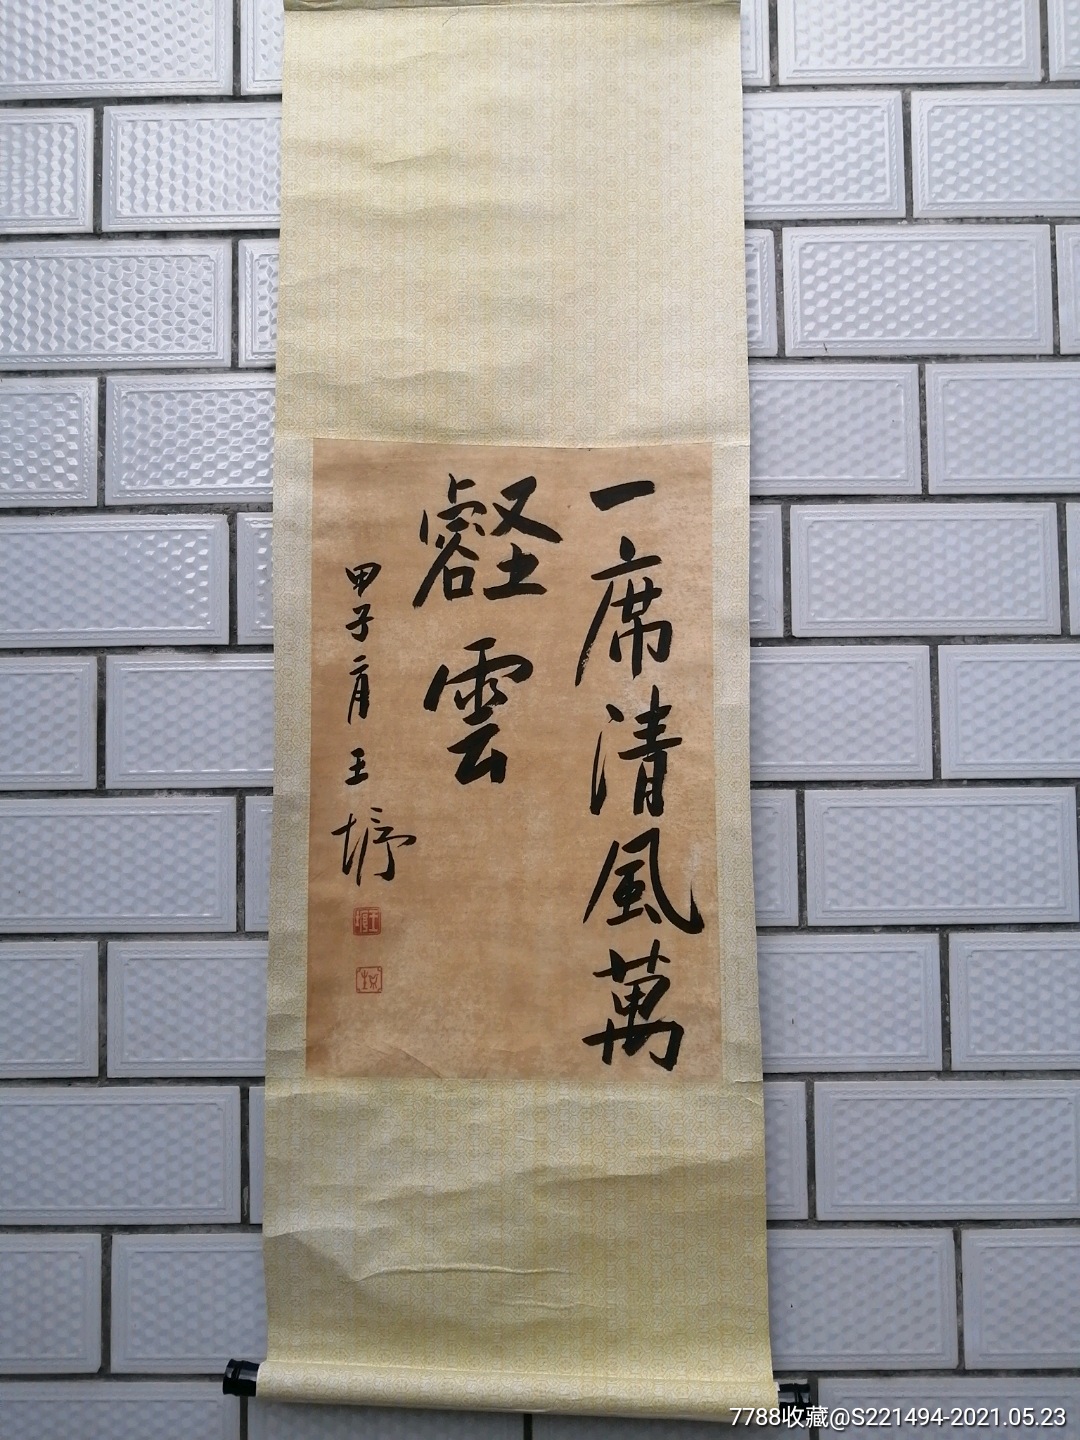 一席清風萬
壑雲
甲子二月王垿
7788收藏@S221494-2021.05.23